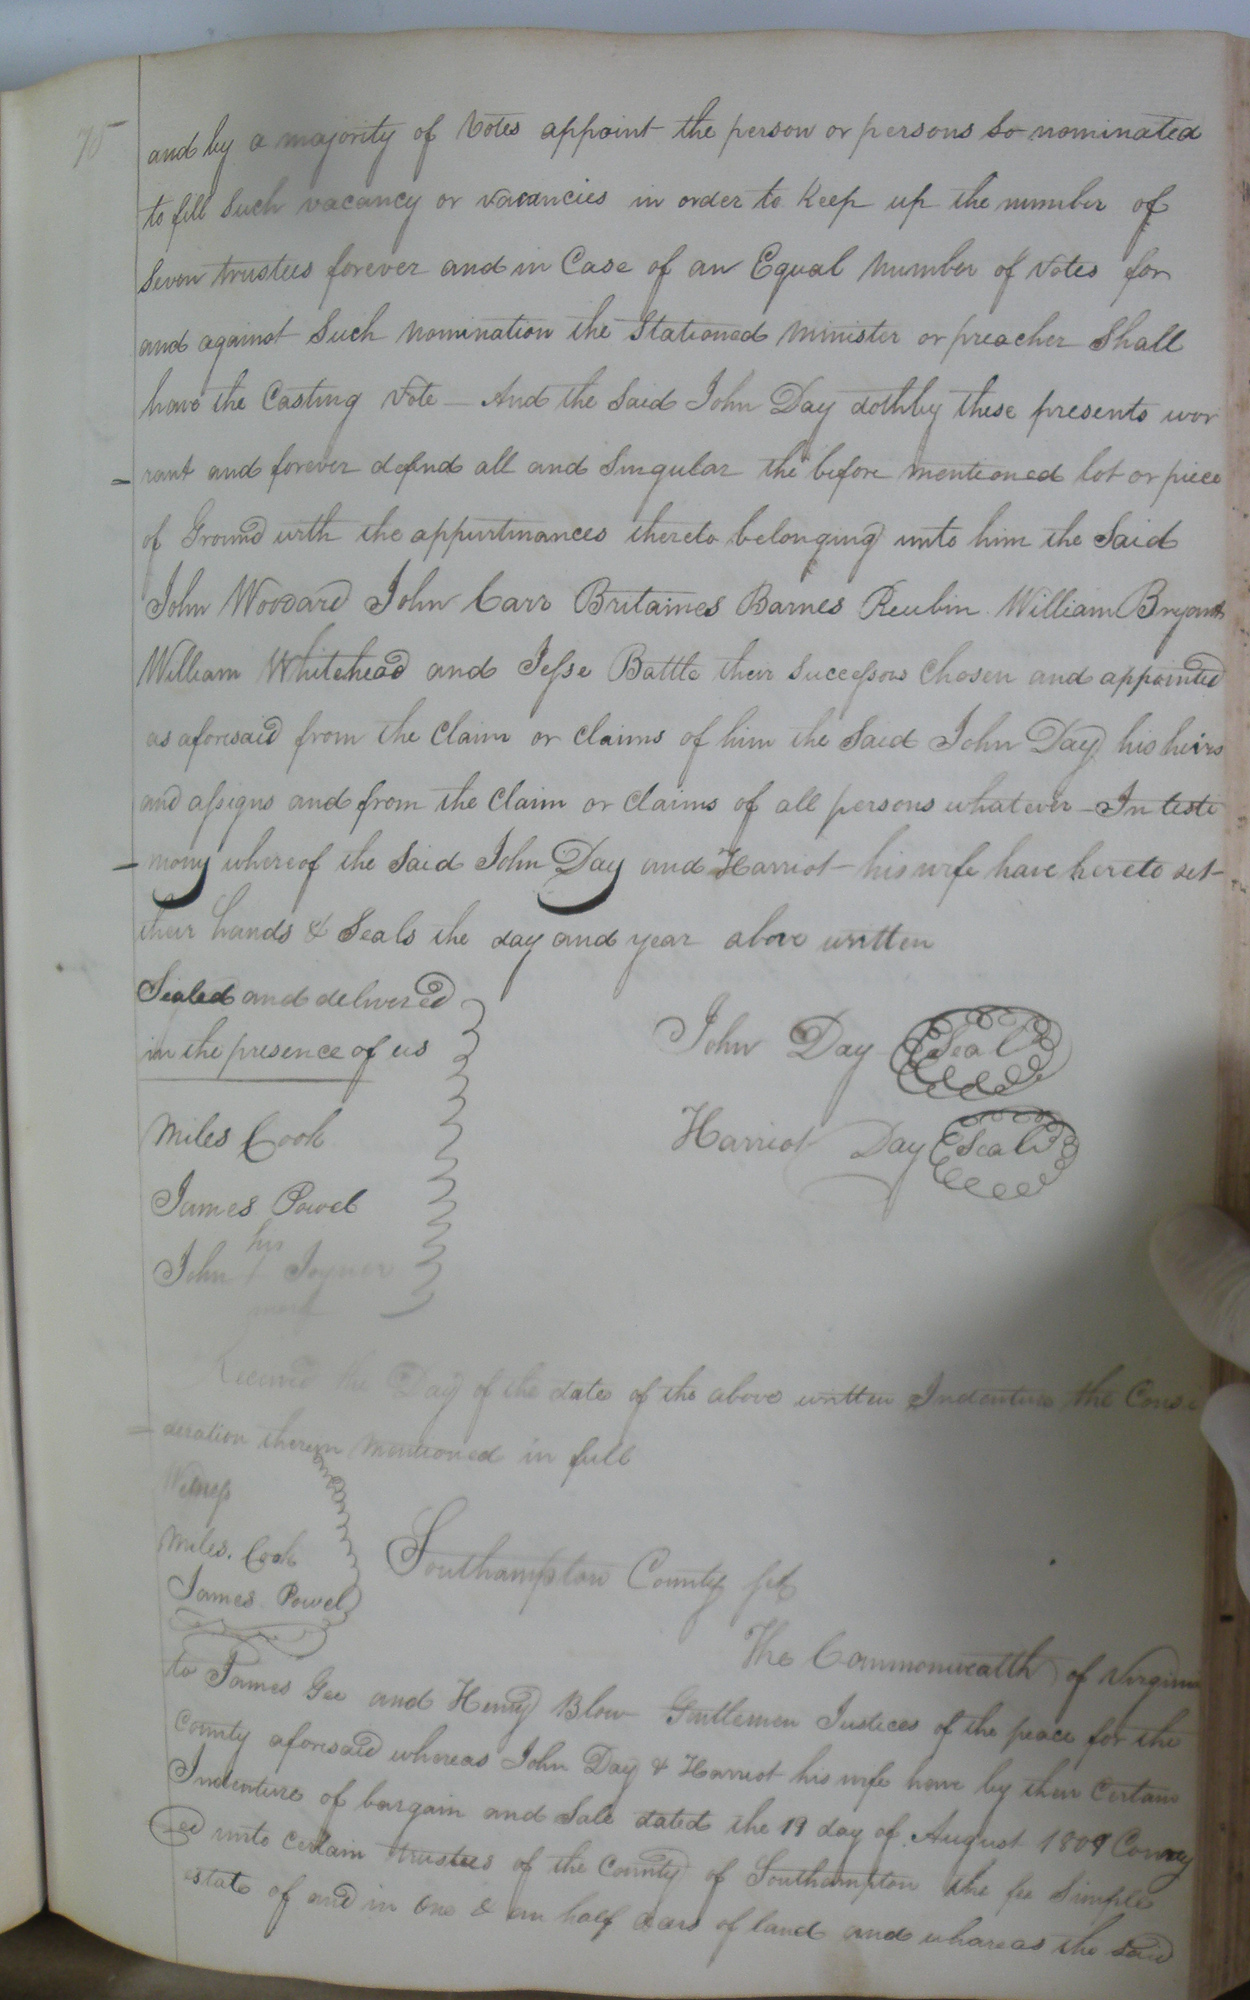 75
and by a majority of Votes appoint the person or persons so nominated
to fill Such vacancy or vacancies in order to Keep up the number of
Seven trustees forever and in Case of an Equal Number of Votes for
and against Such Nomination the Stationed Minister or preacher Shall
have the Casting Vote — And the Said John Day doth by these presents war
= rant and forever defend all and Singular the before mentioned lot or piece
of Ground with the appurtinances thereto belonging unto him the Said
John Woodard John Carr Britaines Barnes Reubin William Bryant
William Whitehead and Jesse Battle their Successors Chosen and appointed
as aforesaid from the Claim or Claims of him the Said John Day his heirs
and assigns and from the Claim or Claims of all persons whatever — In testi
= mony whereof the Said John Day and Harriot his wife have hereto set
their hands & Seals the day and year above written
Sealed and delivered
in the presence of us
John Day Seal
Harriot Day Seal
Miles Cook
James Powel
his
John + Joyner
mark
Received the Day of the date of the above written Indenture the Consi
= deration therein Mentioned in full
Witness
Miles. Cook
James Powel
Southampton County Sct
The Commonwealth of Virginia
to James Gee and Henry Blow Gentlemen Justices of the peace for the
County aforesaid whereas John Day & Harriot his wife have by their Certain
Indenture of bargain and Sale dated the 19 day of August 1809 Convey
=ed unto certain trustees of the County of Southampton the fee Simple
estate of and in one & an half acars of land and whareas the Said